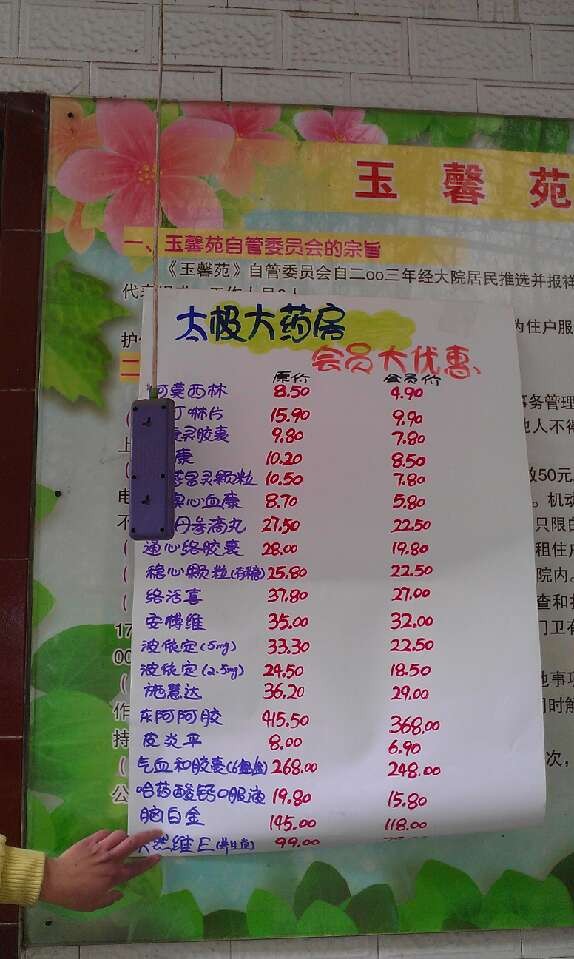 玉馨苑
一、玉馨苑自管委员会的宗旨
《玉馨苑》自管委员会自二oo三年经大院居民推选并报祥
为住户服
太极大药房
会员大优惠
原价 会员价
阿莫西林 8.50 4.90
丁啉片 15.90 9.90
灵胶囊 9.80 7.80
康 10.20 8.50
颗粒 10.50 7.80
心血康 8.70 5.80
丹参滴丸 27.50 22.50
通心络胶囊 28.00 19.80
稳心颗粒(无糖) 25.80 22.50
络活喜 37.80 27.00
安博维 35.00 32.00
波依定(5mg) 33.30 22.50
波依定(2.5mg) 24.50 18.50
施慧达 36.20 29.00
东阿阿胶 415.50 368.00
皮炎平 8.00 6.90
气血和胶囊 268.00 248.00
哈药酸钙口服液 19.80 15.80
脑白金 145.00 118.00
天然维E(养生堂) 99.00
务管理
他人不得
50元
机动
只限白
租住户
院内。
查和
门卫有
地事项
同时解
次，